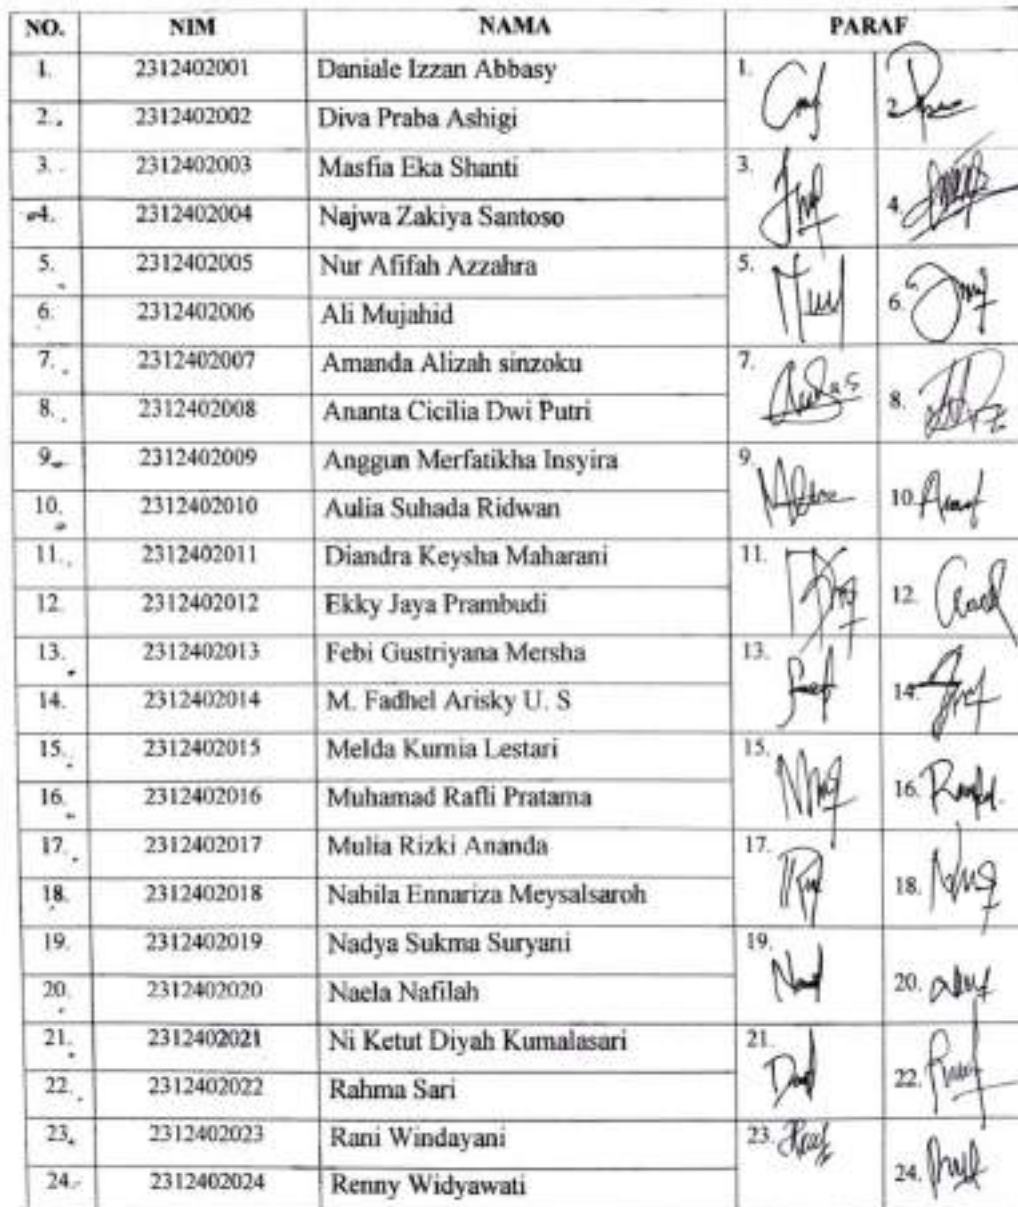 NO. NIM NAMA PARAF
1. 2312402001 Daniale Izzan Abbasy 1.
2. 2312402002 Diva Praba Ashigi 2.
3. 2312402003 Masfia Eka Shanti 3.
4. 2312402004 Najwa Zakiya Santoso 4.
5. 2312402005 Nur Afifah Azzahra 5.
6. 2312402006 Ali Mujahid 6.
7. 2312402007 Amanda Alizah sinzoku 7.
8. 2312402008 Ananta Cicilia Dwi Putri 8.
9. 2312402009 Anggun Merfatikha Insyira 9.
10. 2312402010 Aulia Suhada Ridwan 10.
11. 2312402011 Diandra Keysha Maharani 11.
12. 2312402012 Ekky Jaya Prambudi 12.
13. 2312402013 Febi Gustriyana Mersha 13.
14. 2312402014 M. Fadhel Arisky U. S 14.
15. 2312402015 Melda Kurnia Lestari 15.
16. 2312402016 Muhamad Rafli Pratama 16.
17. 2312402017 Mulia Rizki Ananda 17.
18. 2312402018 Nabila Ennariza Meysalsaroh 18.
19. 2312402019 Nadya Sukma Suryani 19.
20. 2312402020 Naela Nafilah 20.
21. 2312402021 Ni Ketut Diyah Kumalasari 21.
22. 2312402022 Rahma Sari 22.
23. 2312402023 Rani Windayani 23.
24. 2312402024 Renny Widyawati 24.